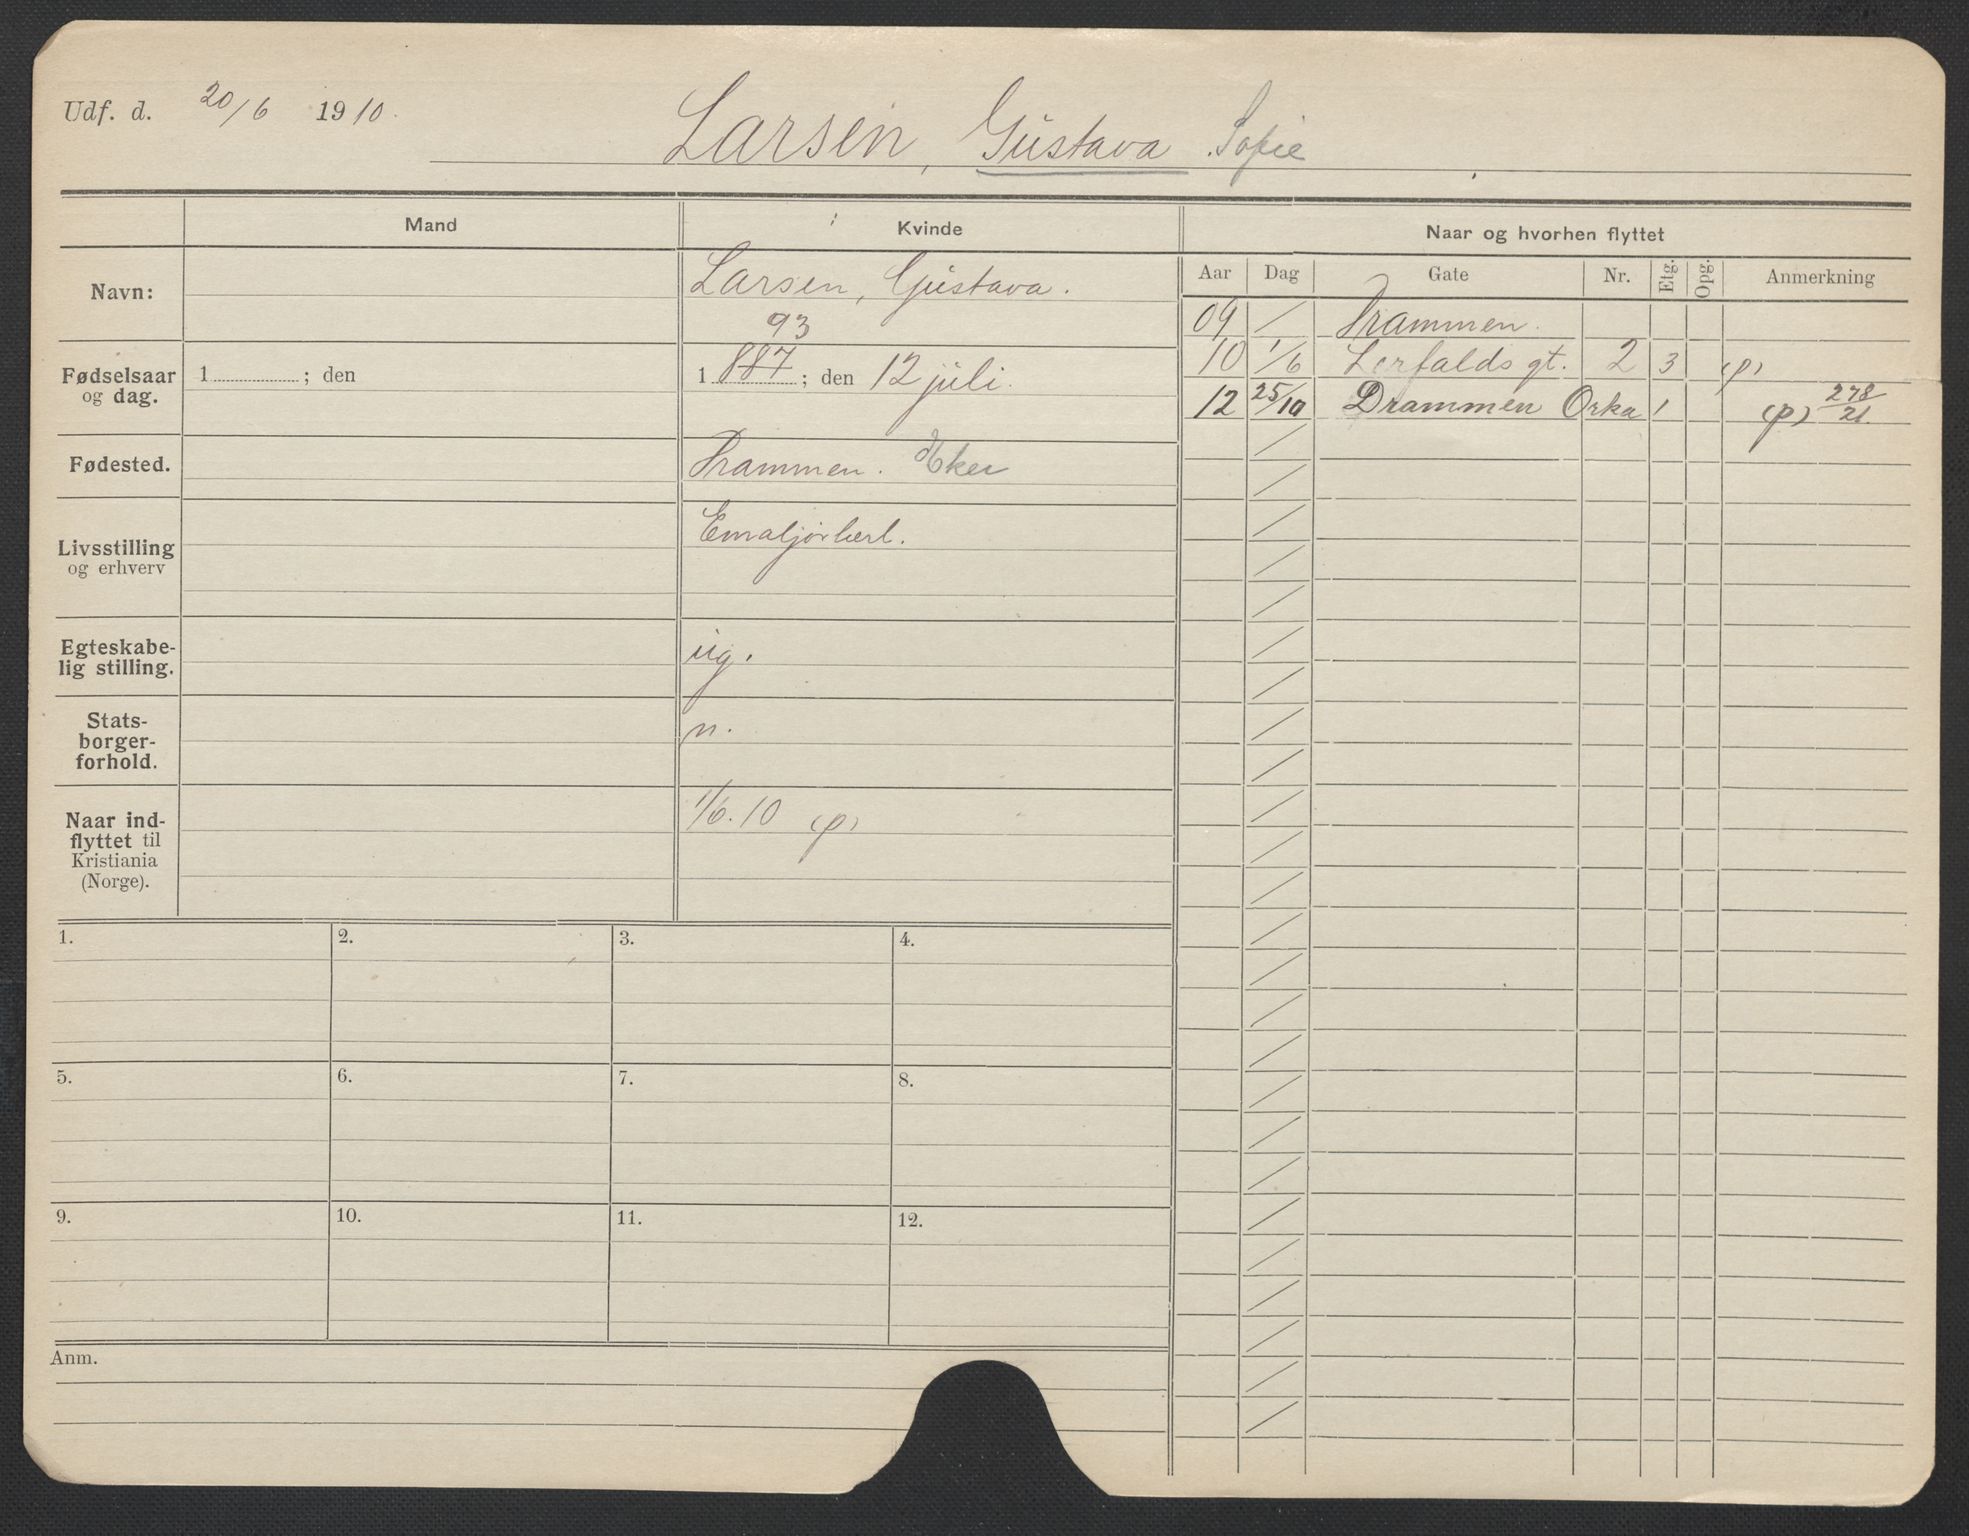 Udf. d. 20/6 1910.
Larsen, Gustava Sofie
Mand
Kvinde
Naar og hvorhen flyttet
Aar Dag Gate Nr. Etg. Opg. Anmerkning
Navn:
Larsen, Gustava.
93
Fødselsaar og dag.
1 ; den
1 887 ; den 12 juli.
Fødested.
Drammen. Eker
Livsstilling og erhverv
Egteskabe-
lig stilling.
ug.
Stats-
borger-
forhold.
n.
Naar ind-
flyttet til
Kristiania
(Norge).
1/6. 10 (p)
09 / Drammen.
10 1/6 Lerfalds gt. 2 3 (p)
12 25/10 Drammen Orka 1 (p) 278/21.
1. 2. 3. 4.
5. 6. 7. 8.
9. 10. 11. 12.
Anm.